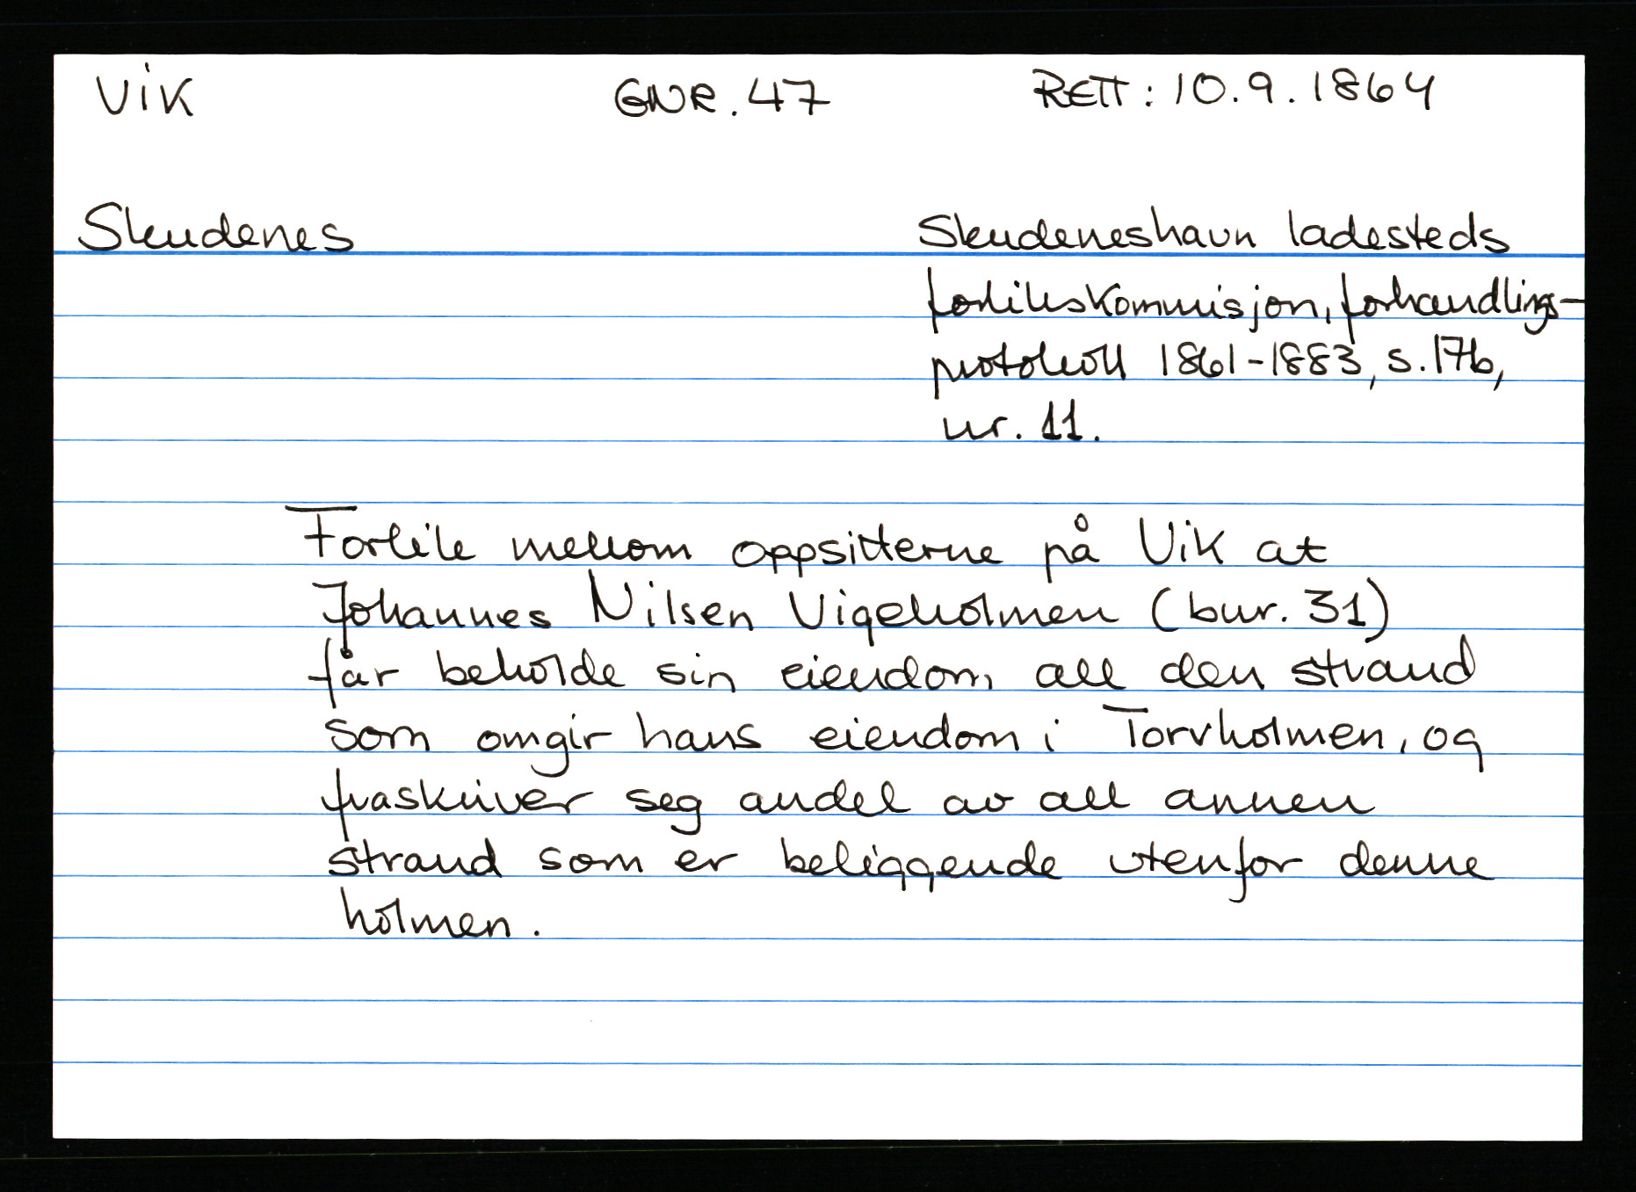 Vik GNR. 47 RETT: 10.9.1864
Skudenes Skudeneshavn ladesteds
forlikskommisjon, forhandlings-
protokoll 1861-1883, s. 17b,
nr. 11.
Forlik mellom oppsitterne på Vik at
Johannes Nilsen Vigeholmen (bnr. 31)
får beholde sin eiendom, all den strand
som omgir hans eiendom i Torvholmen, og
fraskriver seg andel av all annen
strand som er beliggende utenfor denne
holmen.